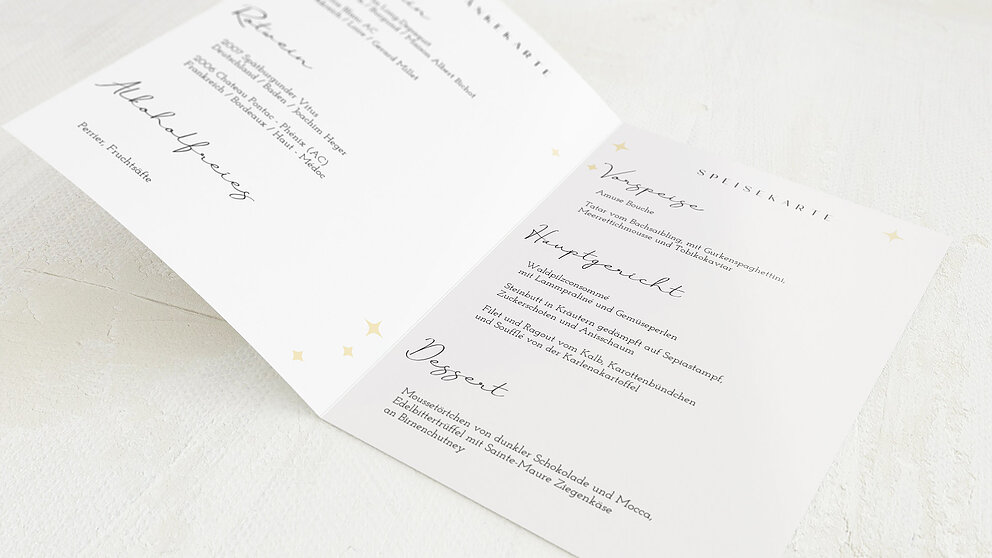 ÄNKEKARTE
Gerard Millet
Rotwein
2007 Spätburgunder Vitus
Deutschland / Baden / Joachim Heger
2006 Chateau Pontac - Phénix (AC)
Frankreich / Bordeaux / Haut - Medoc
Alkoholfreies
Perrier, Fruchtsäfte
SPEISEKARTE
Vorspeise
Amuse Bouche
Tatar vom Bachsaibling, mit Gurkenspaghettini,
Meerrettichmousse und Tobikokaviar
Hauptgericht
Waldpilzconsommé
mit Lammpraliné und Gemüseperlen
Steinbutt in Kräutern gedämpft auf Sepiastampf,
Zuckerschoten und Anisschaum
Filet und Ragout vom Kalb, Karottenbündchen
und Soufflé von der Karlenakartoffel
Dessert
Moussetörtchen von dunkler Schokolade und Mocca,
Edelbittertrüffel mit Sainte-Maure Ziegenkäse
an Birnenchutney